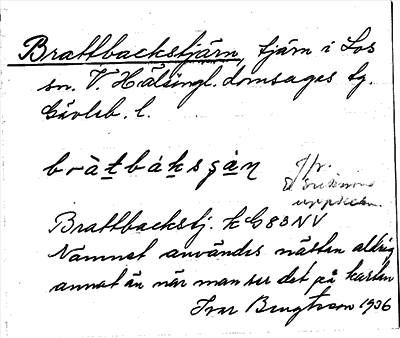 Brattbackstjärn, tjärn i Los
sn. V. Hälsingl. domsagas tg.
Gävleb. l.
bràt̠bák̠sʂà̠n̥
Jfr.
uppteckn.
Brattbackstj. k G83NV
Namnet användes nästan aldrig
annat än när man ser det på kartan
Ivar Bengtsson 1936